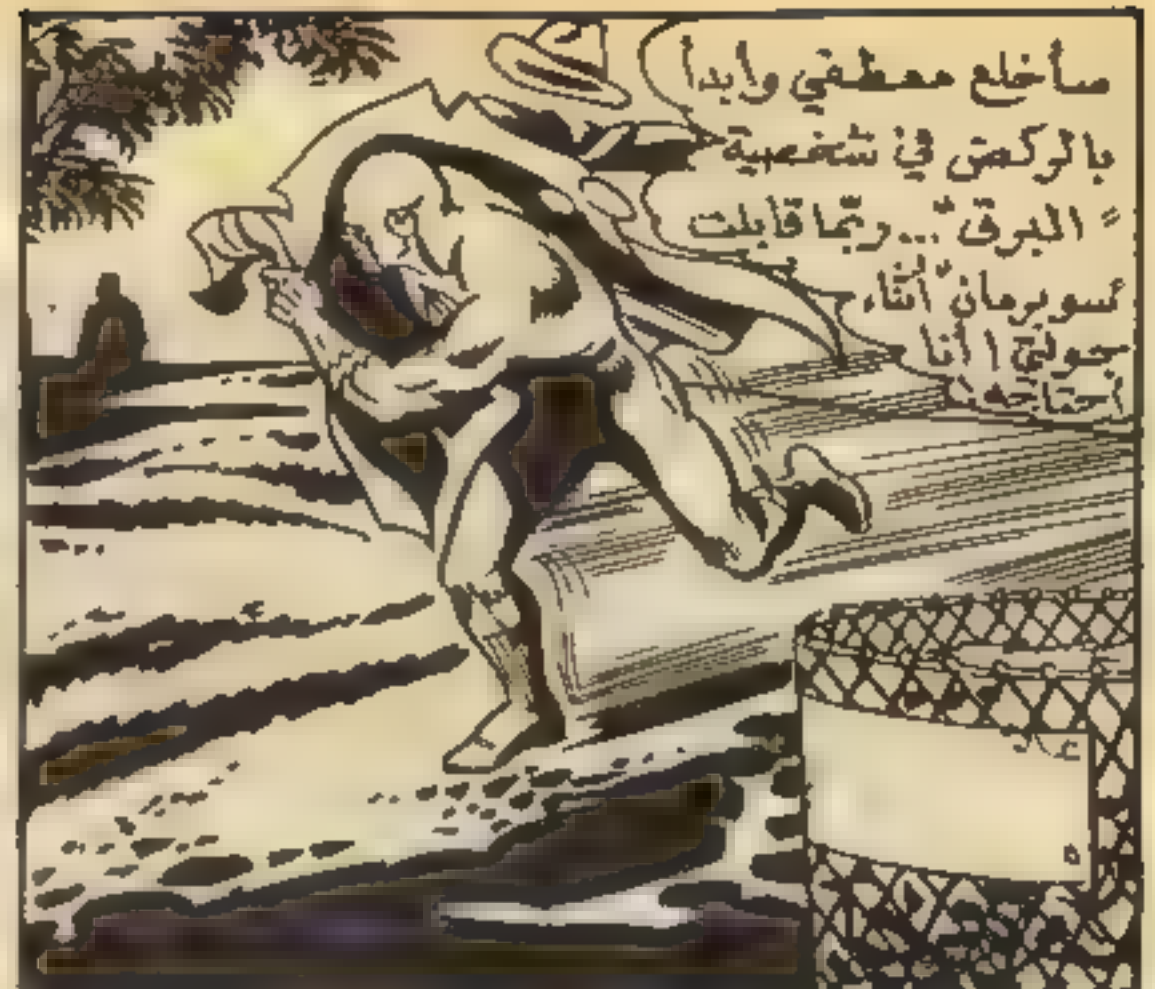 سأخلع معطفي وابدأ
بالركض في شخصية
" البرق "... ربّما قابلت
سوبرمان أثناء
جولتي ! أنا